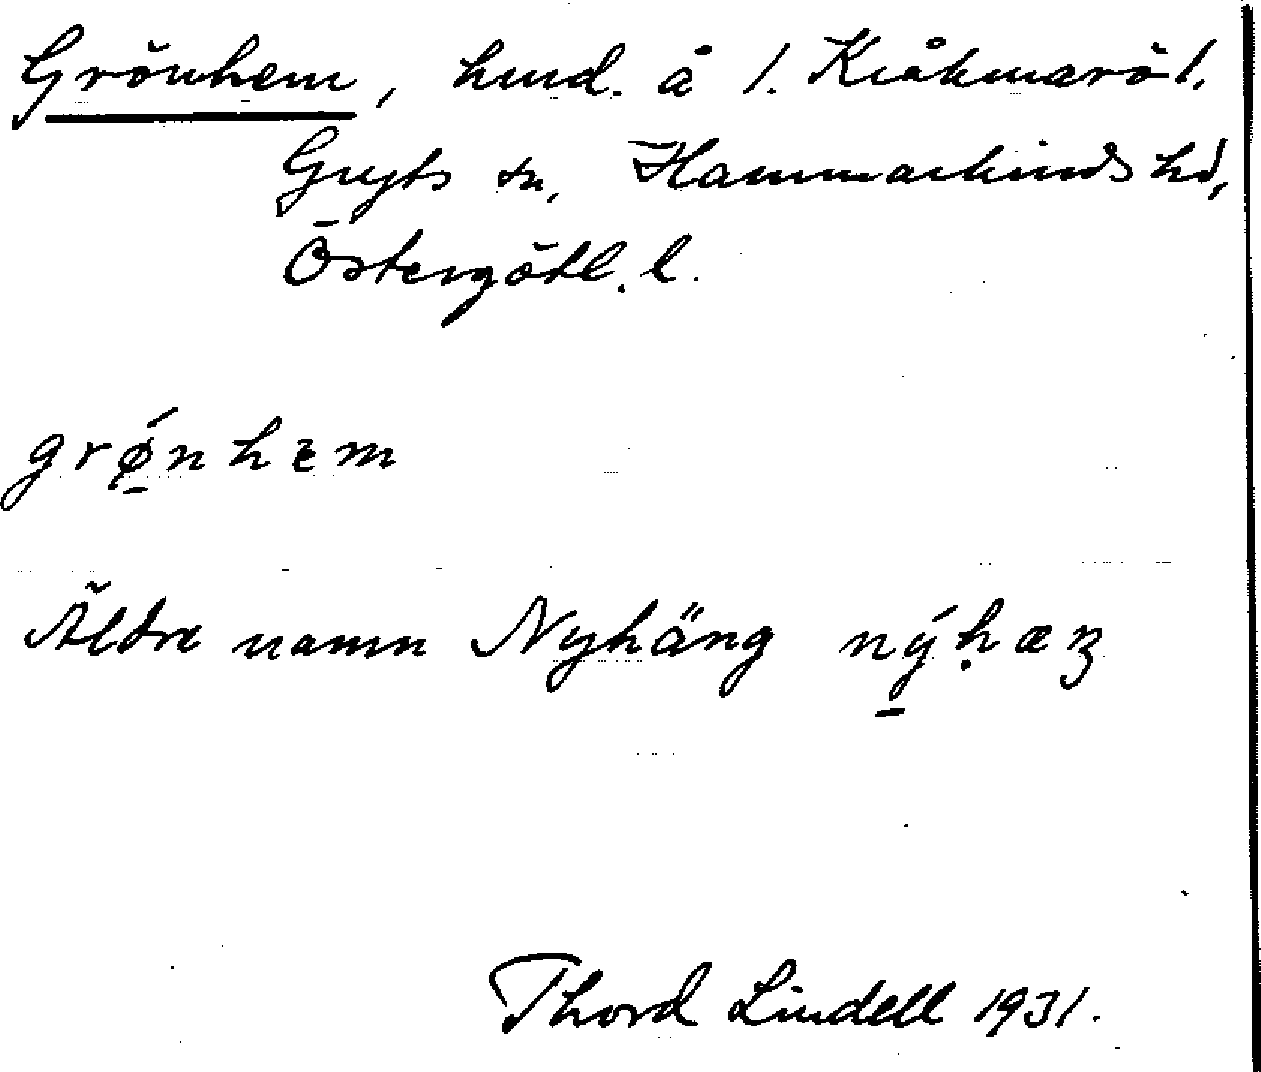 Grönhem, hmd. å 1. Kråkmarö 1.
Gryts sn, Hammarkinds hd,
Östergötl. l.
grǿ̱nhɛm
Äldre namn Nyhäng ný̱ḥæŋ
Thord Lindell 1931.